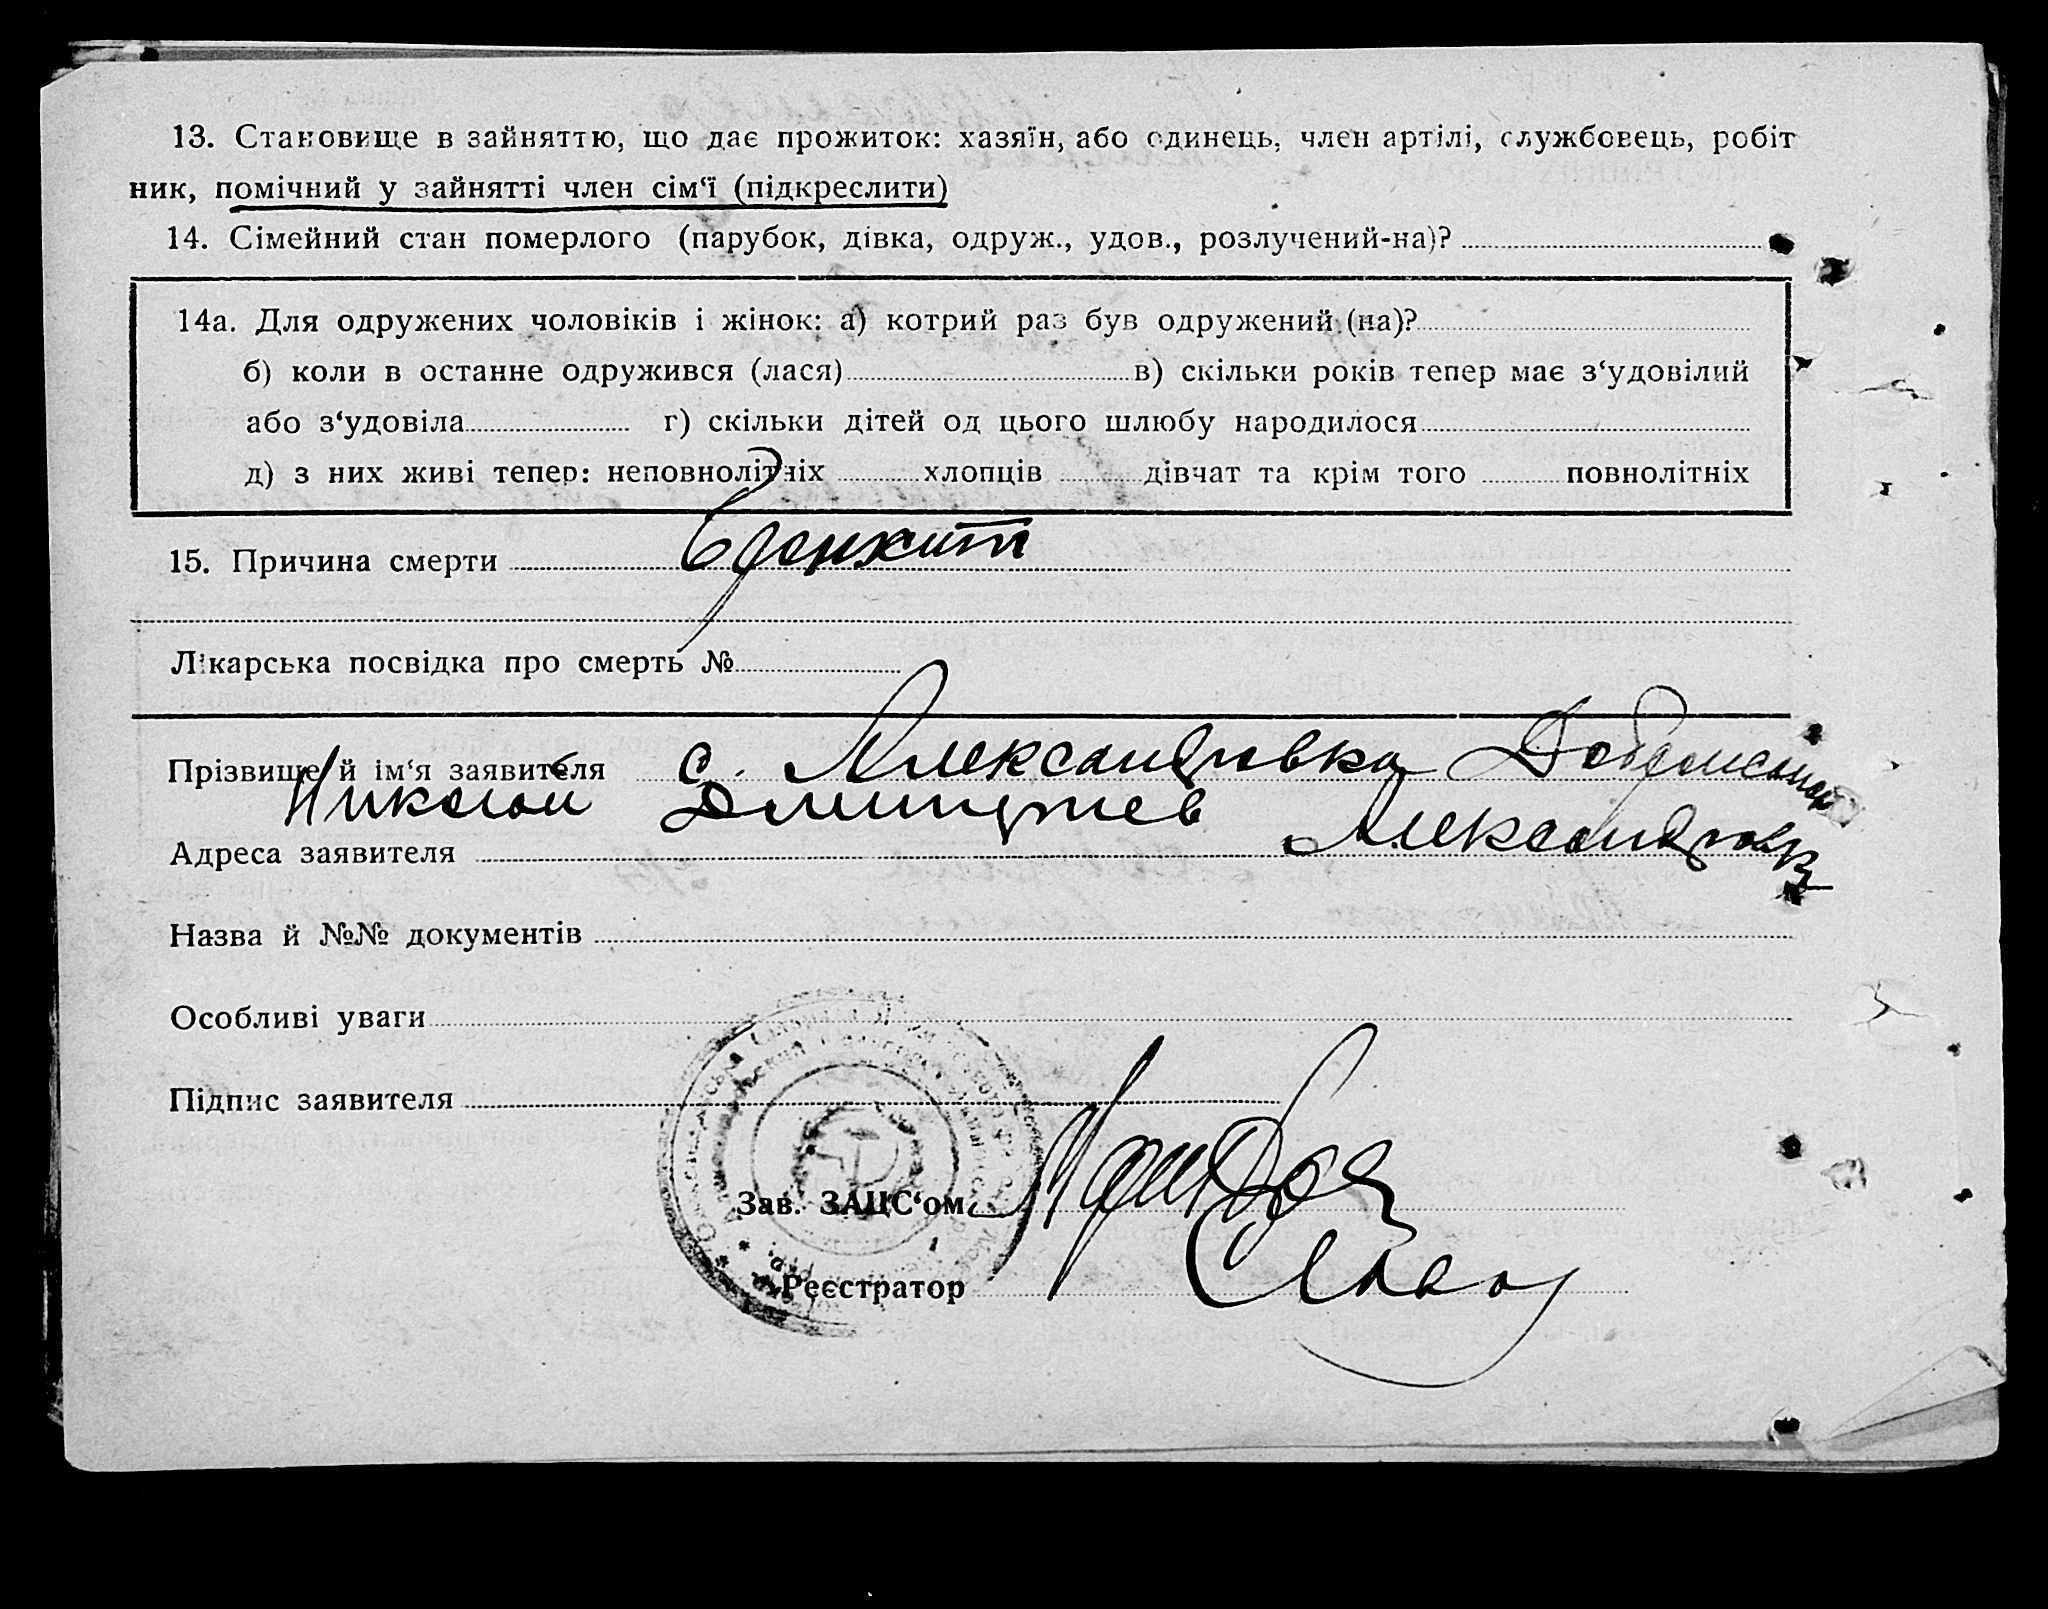 13. Становище в зайняттю, що дає прожиток: хазяїн, або одинець, член артілі, службовець, робіт
ник, помічний у зайнятті член сім‘ї (підкреслити)
14. Сімейний стан померлого (парубок, дівка, одруж., удов., розлучений-на)?
14а. Для одружених чоловіків і жінок: а) котрий раз був одружений (на)?
б) коли в останне одружився (лася) в) скільки років тепер має з‘удовілий
або з‘удовіла г) скільки дітей од цього шлюбу народилося
д) з них живі тепер: неповнолітніх хлопців дівчат та крім того повнолітніх
15. Причина смерти бронхит
Лікарська посвідка про смерть №
Прізвище й ім‘я заявителя с. Александровка
Николай Дмитриев Александровк
Адреса заявителя
Назва й №№ документів
Особливі уваги
Підпис заявителя
Зав. ЗАЦС‘ом
Реєстратор